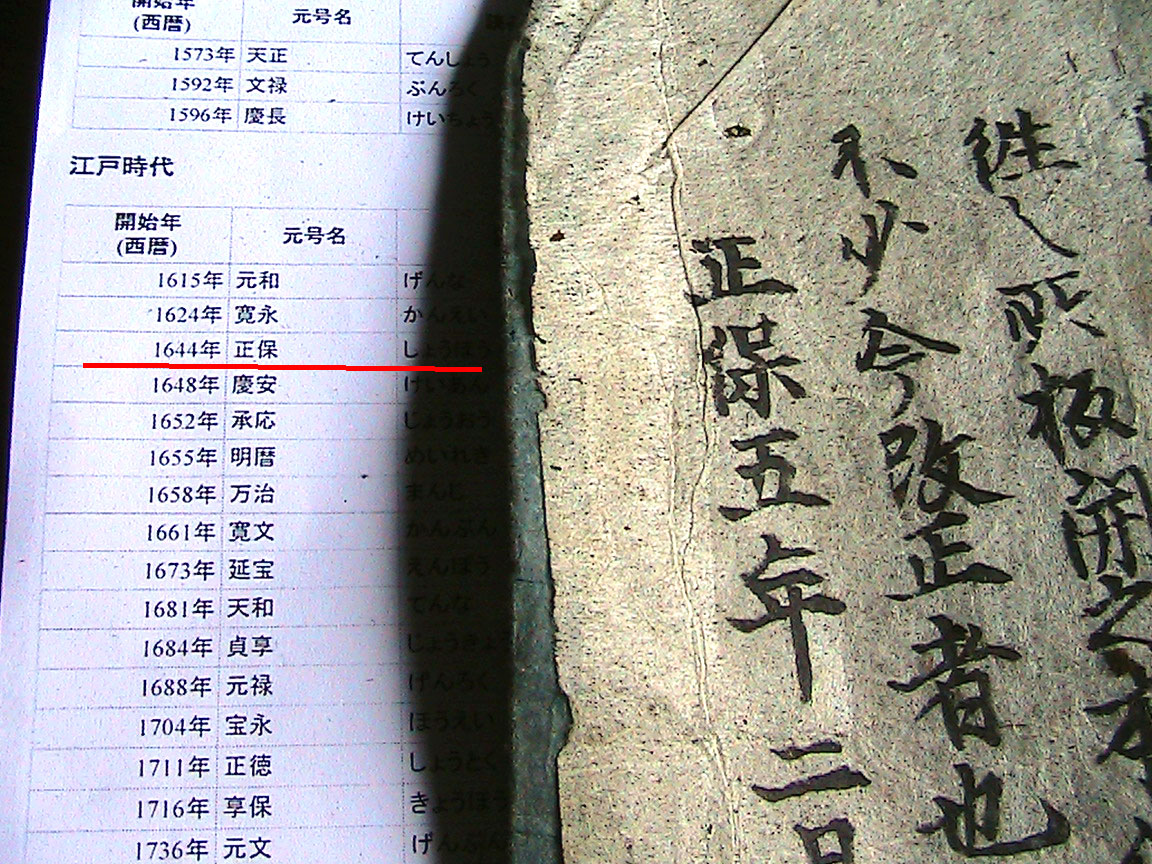 開始年
(西暦) 元号名
1573年 天正 てんしょう
1592年 文禄 ぶんろく
1596年 慶長 けいちょう
江戸時代
開始年
(西暦) 元号名
1615年 元和 げんな
1624年 寛永 かんえい
1644年 正保 しょうほう
1648年 慶安 けいあん
1652年 承応 しょうおう
1655年 明暦 めいれき
1658年 万治 まんじ
1661年 寛文 かんぶん
1673年 延宝 えんぽう
1681年 天和 てんな
1684年 貞享 じょうきょ
1688年 元禄 げんろく
1704年 宝永 ほうえい
1711年 正徳 しょうとく
1716年 享保 きょうほ
1736年 元文 げんぶん
板開之本
不少今改正者也
正保五年二